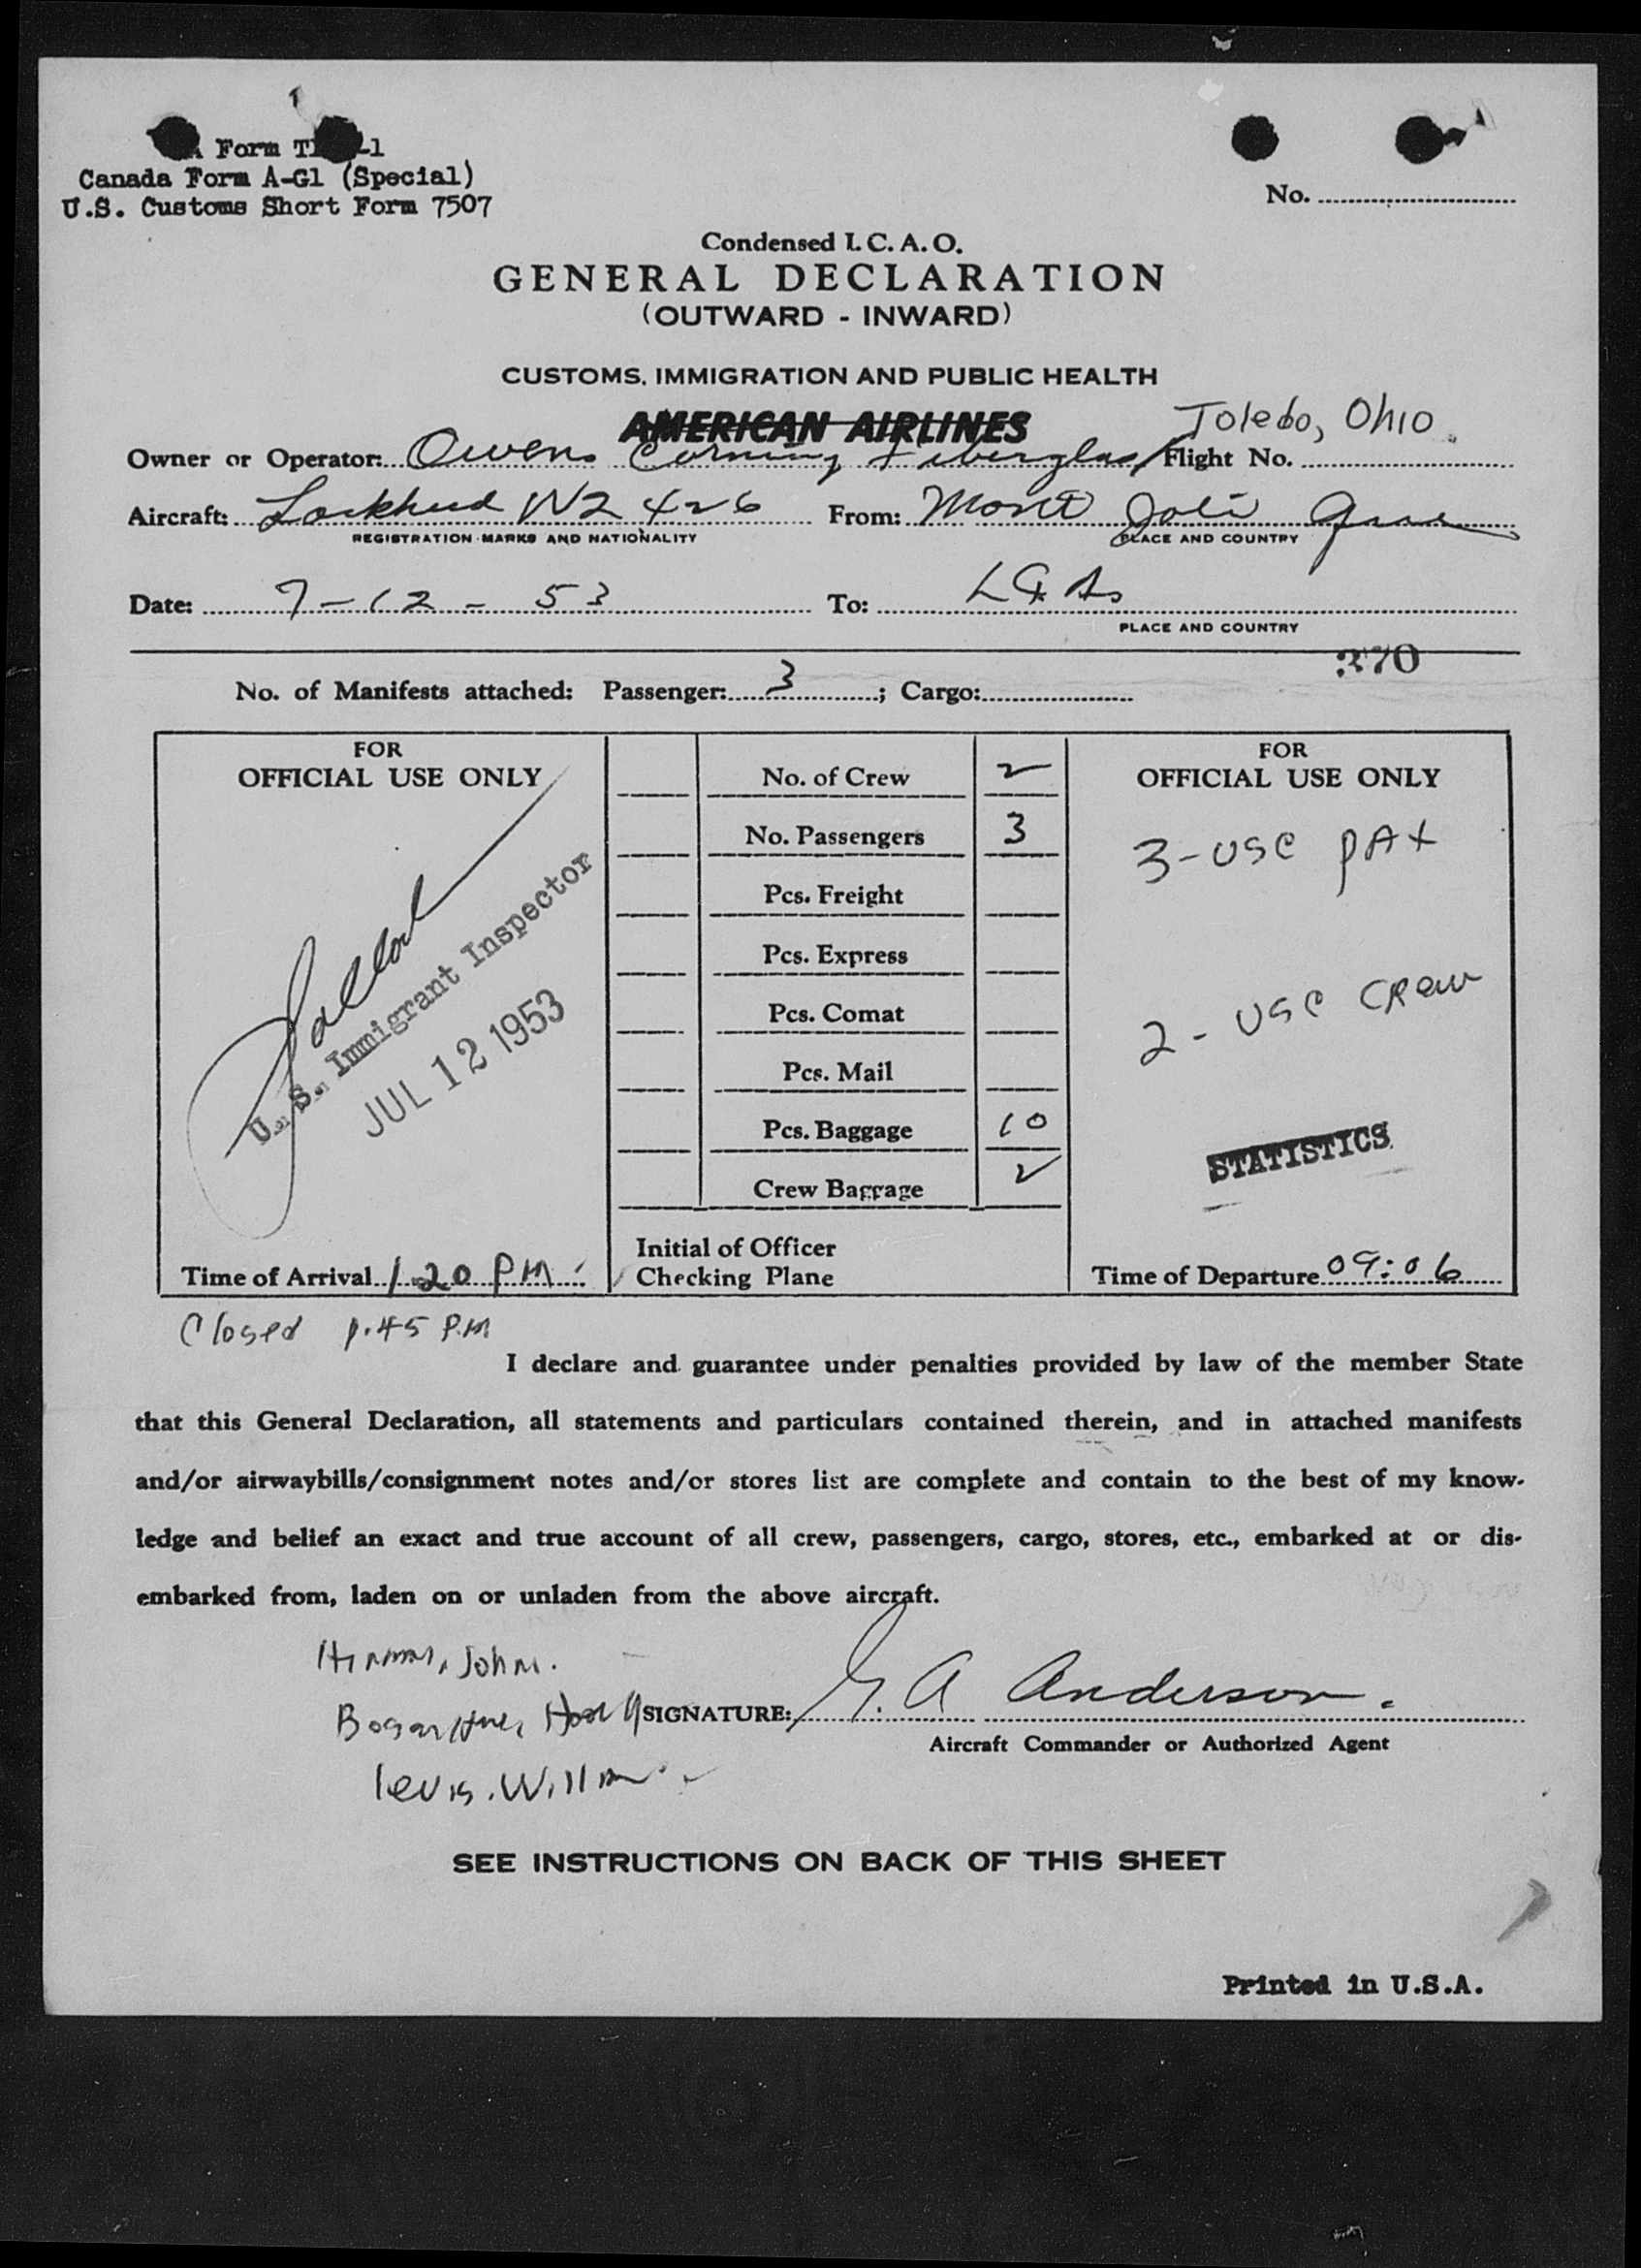 Form
Canada Form A-G1 (Special)
U.S. Customs Short Form 7507
No.
Condensed I. C. A. O.
GENERAL DECLARATION
(OUTWARD - INWARD)
CUSTOMS, IMMIGRATION AND PUBLIC HEALTH
AMERICAN AIRLINES
Toledo, Ohio
Owner or Operator: Owens Corning Fiberglas Flight No.
Aircraft: Lockheed N2426 From: Mont Joli
REGISTRATION MARKS AND NATIONALITY PLACE AND COUNTRY
Date: 7-12-53 To:
PLACE AND COUNTRY
370
No. of Manifests attached: Passenger: 3 ; Cargo:
FOR
OFFICIAL USE ONLY
U. S. Immigrant Inspector
JUL 12 1953
Time of Arrival 1.20 PM
No. of Crew 2
No. Passengers 3
Pcs. Freight
Pcs. Express
Pcs. Comat
Pcs. Mail
Pcs. Baggage 10
Crew Baggage 2
Initial of Officer
Checking Plane
FOR
OFFICIAL USE ONLY
3-USC PAX
2-USC Crew
STATISTICS
Time of Departure 09:06
Closed 1.45 P.M
I declare and guarantee under penalties provided by law of the member State
that this General Declaration, all statements and particulars contained therein, and in attached manifests
and/or airwaybills/consignment notes and/or stores list are complete and contain to the best of my know-
ledge and belief an exact and true account of all crew, passengers, cargo, stores, etc., embarked at or dis-
embarked from, laden on or unladen from the above aircraft.
John
SIGNATURE: G. A Anderson.
Aircraft Commander or Authorized Agent
Levis. William
SEE INSTRUCTIONS ON BACK OF THIS SHEET
Printed in U.S.A.